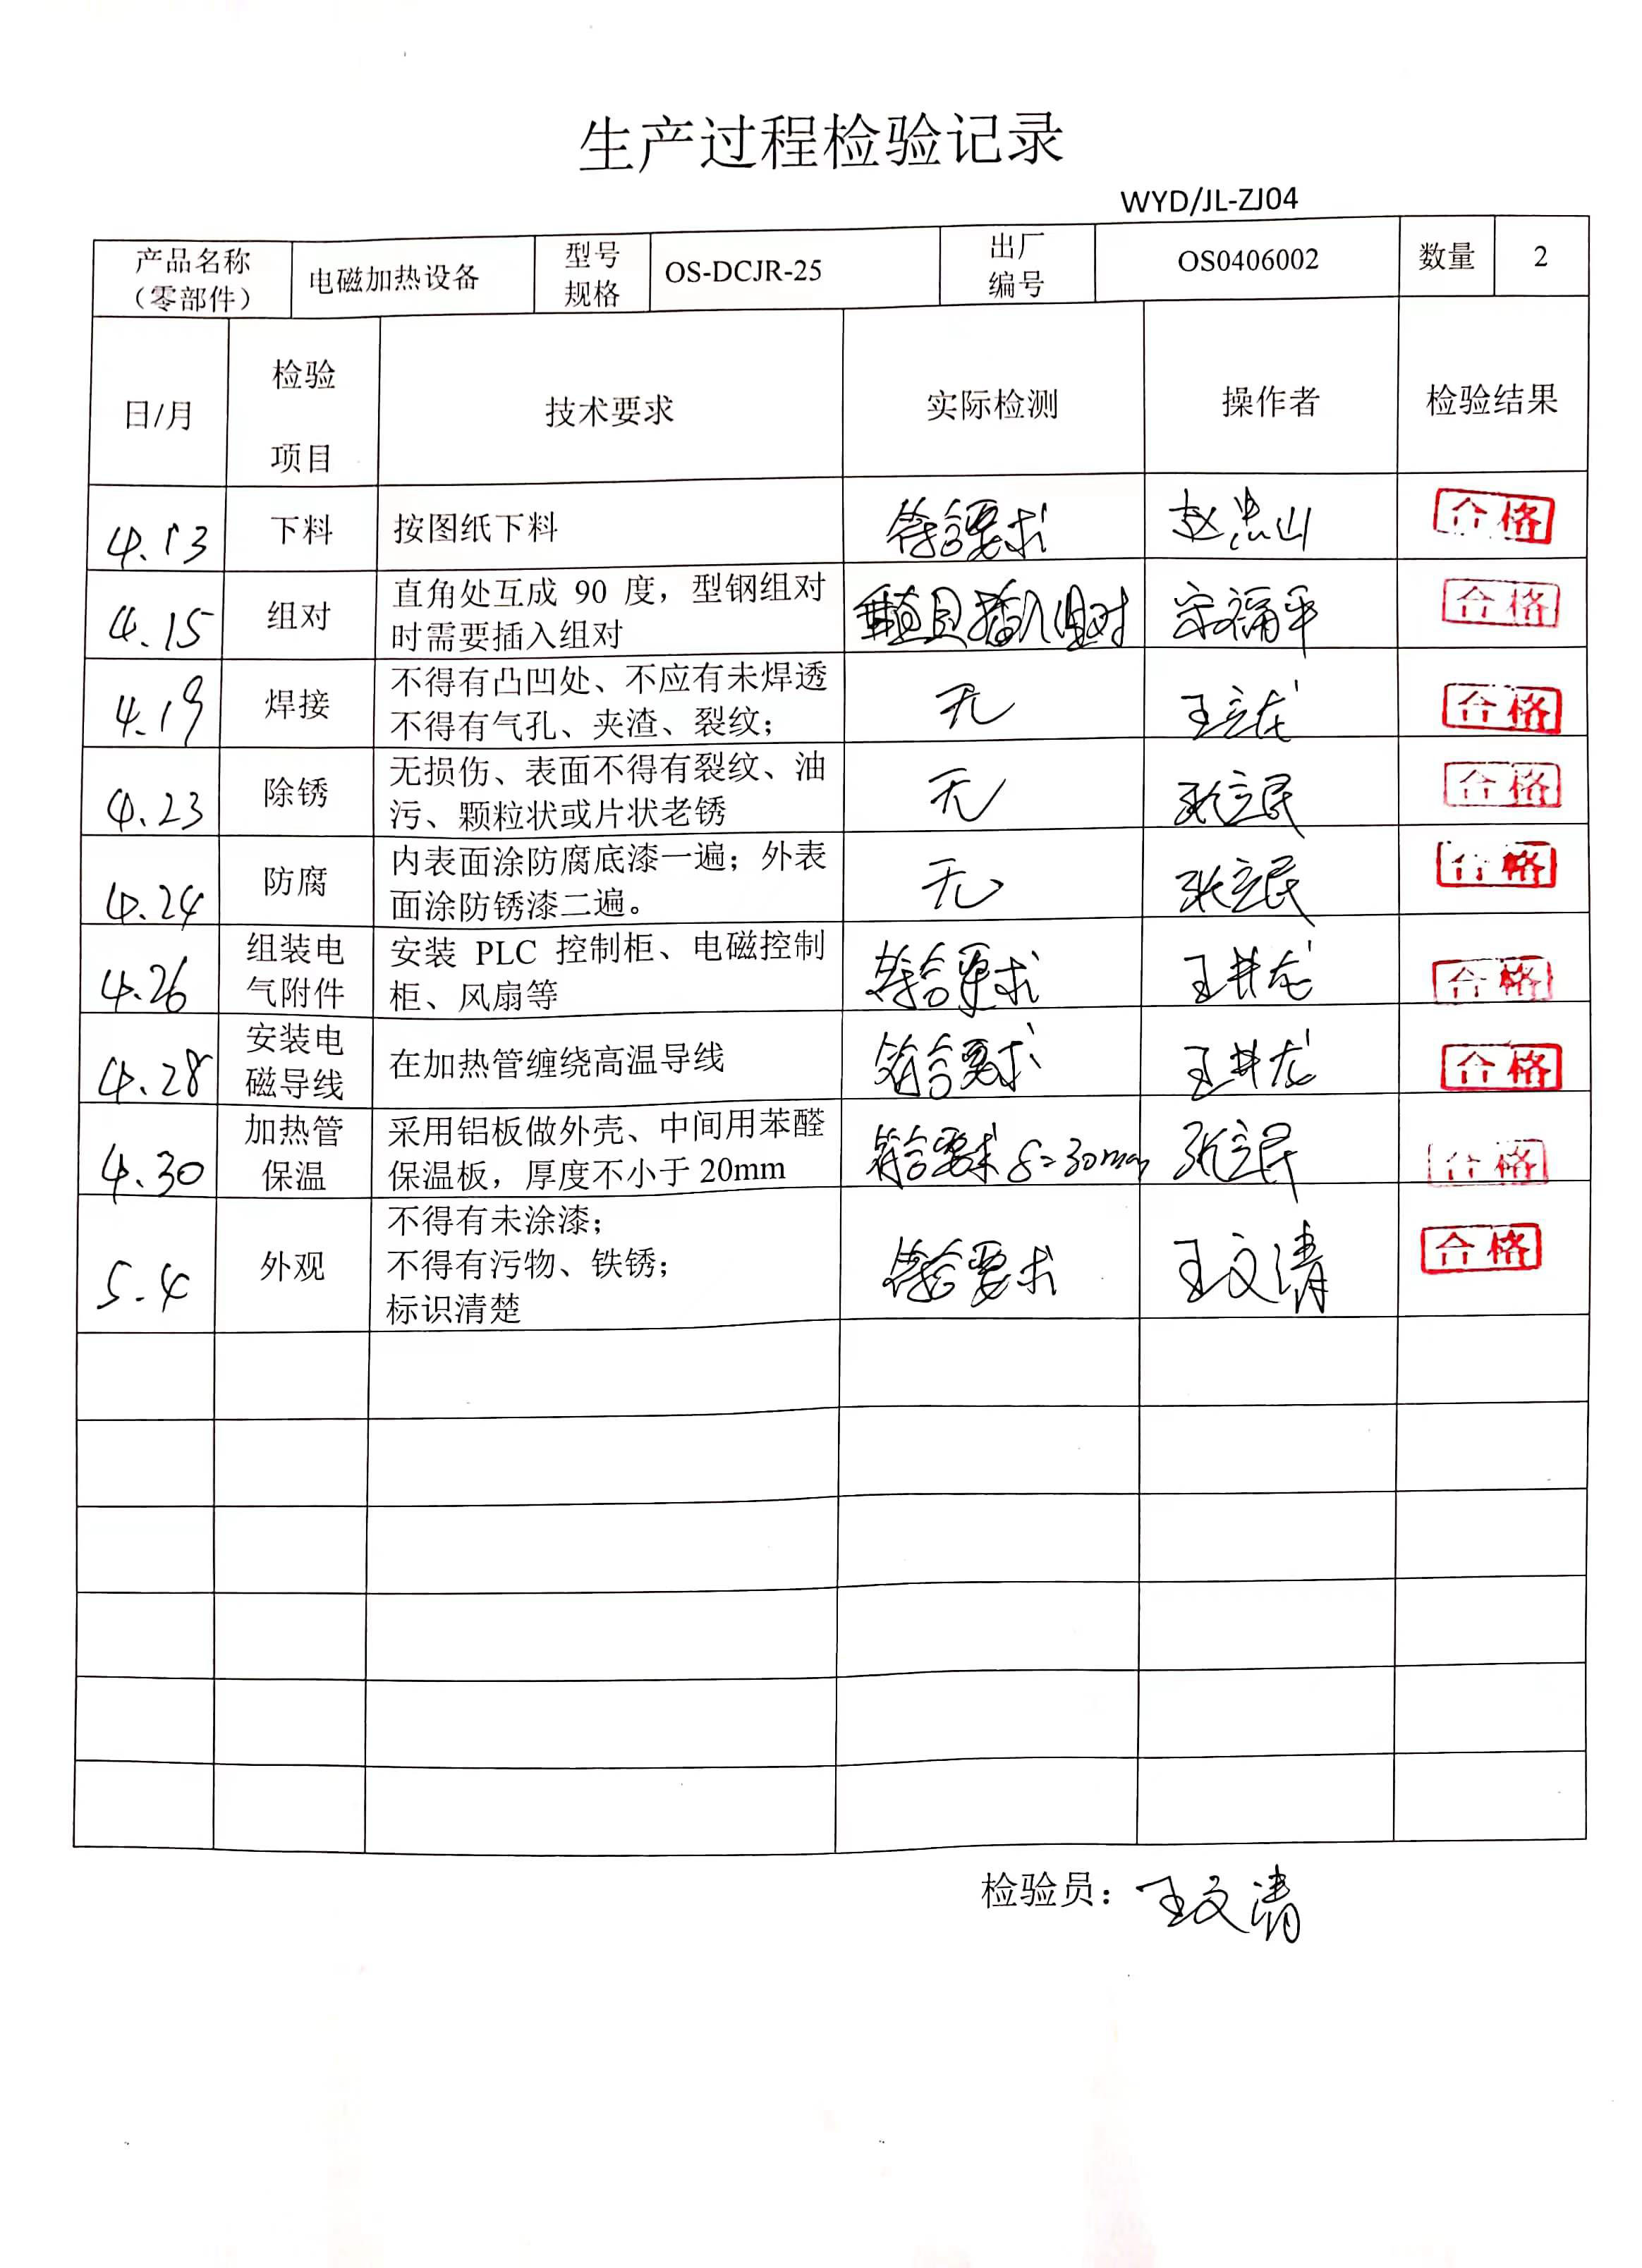 生产过程检验记录
WYD/JL-ZJ04
产品名称
（零部件）
电磁加热设备
型号
规格
OS-DCJR-25
出厂
编号
OS0406002
数量
2
日/月
检验
项目
技术要求
实际检测
操作者
检验结果
4.13
下料
按图纸下料
符合要求
赵忠山
合格
4.15
组对
直角处互成 90 度，型钢组对
时需要插入组对
垂直且插入组对
宋福平
合格
4.19
焊接
不得有凸凹处、不应有未焊透
不得有气孔、夹渣、裂纹；
无
合格
4.23
除锈
无损伤、表面不得有裂纹、油
污、颗粒状或片状老锈
无
张立民
合格
4.24
防腐
内表面涂防腐底漆一遍；外表
面涂防锈漆二遍。
无
张立民
合格
4.26
组装电
气附件
安装 PLC 控制柜、电磁控制
柜、风扇等
符合要求
王井龙
合格
4.28
安装电
磁导线
在加热管缠绕高温导线
符合要求
王井龙
合格
4.30
加热管
保温
采用铝板做外壳、中间用苯醛
保温板，厚度不小于 20mm
符合要求 δ=30mm
张立民
合格
5.4
外观
不得有未涂漆；
不得有污物、铁锈；
标识清楚
符合要求
王文清
合格
检验员：王文清